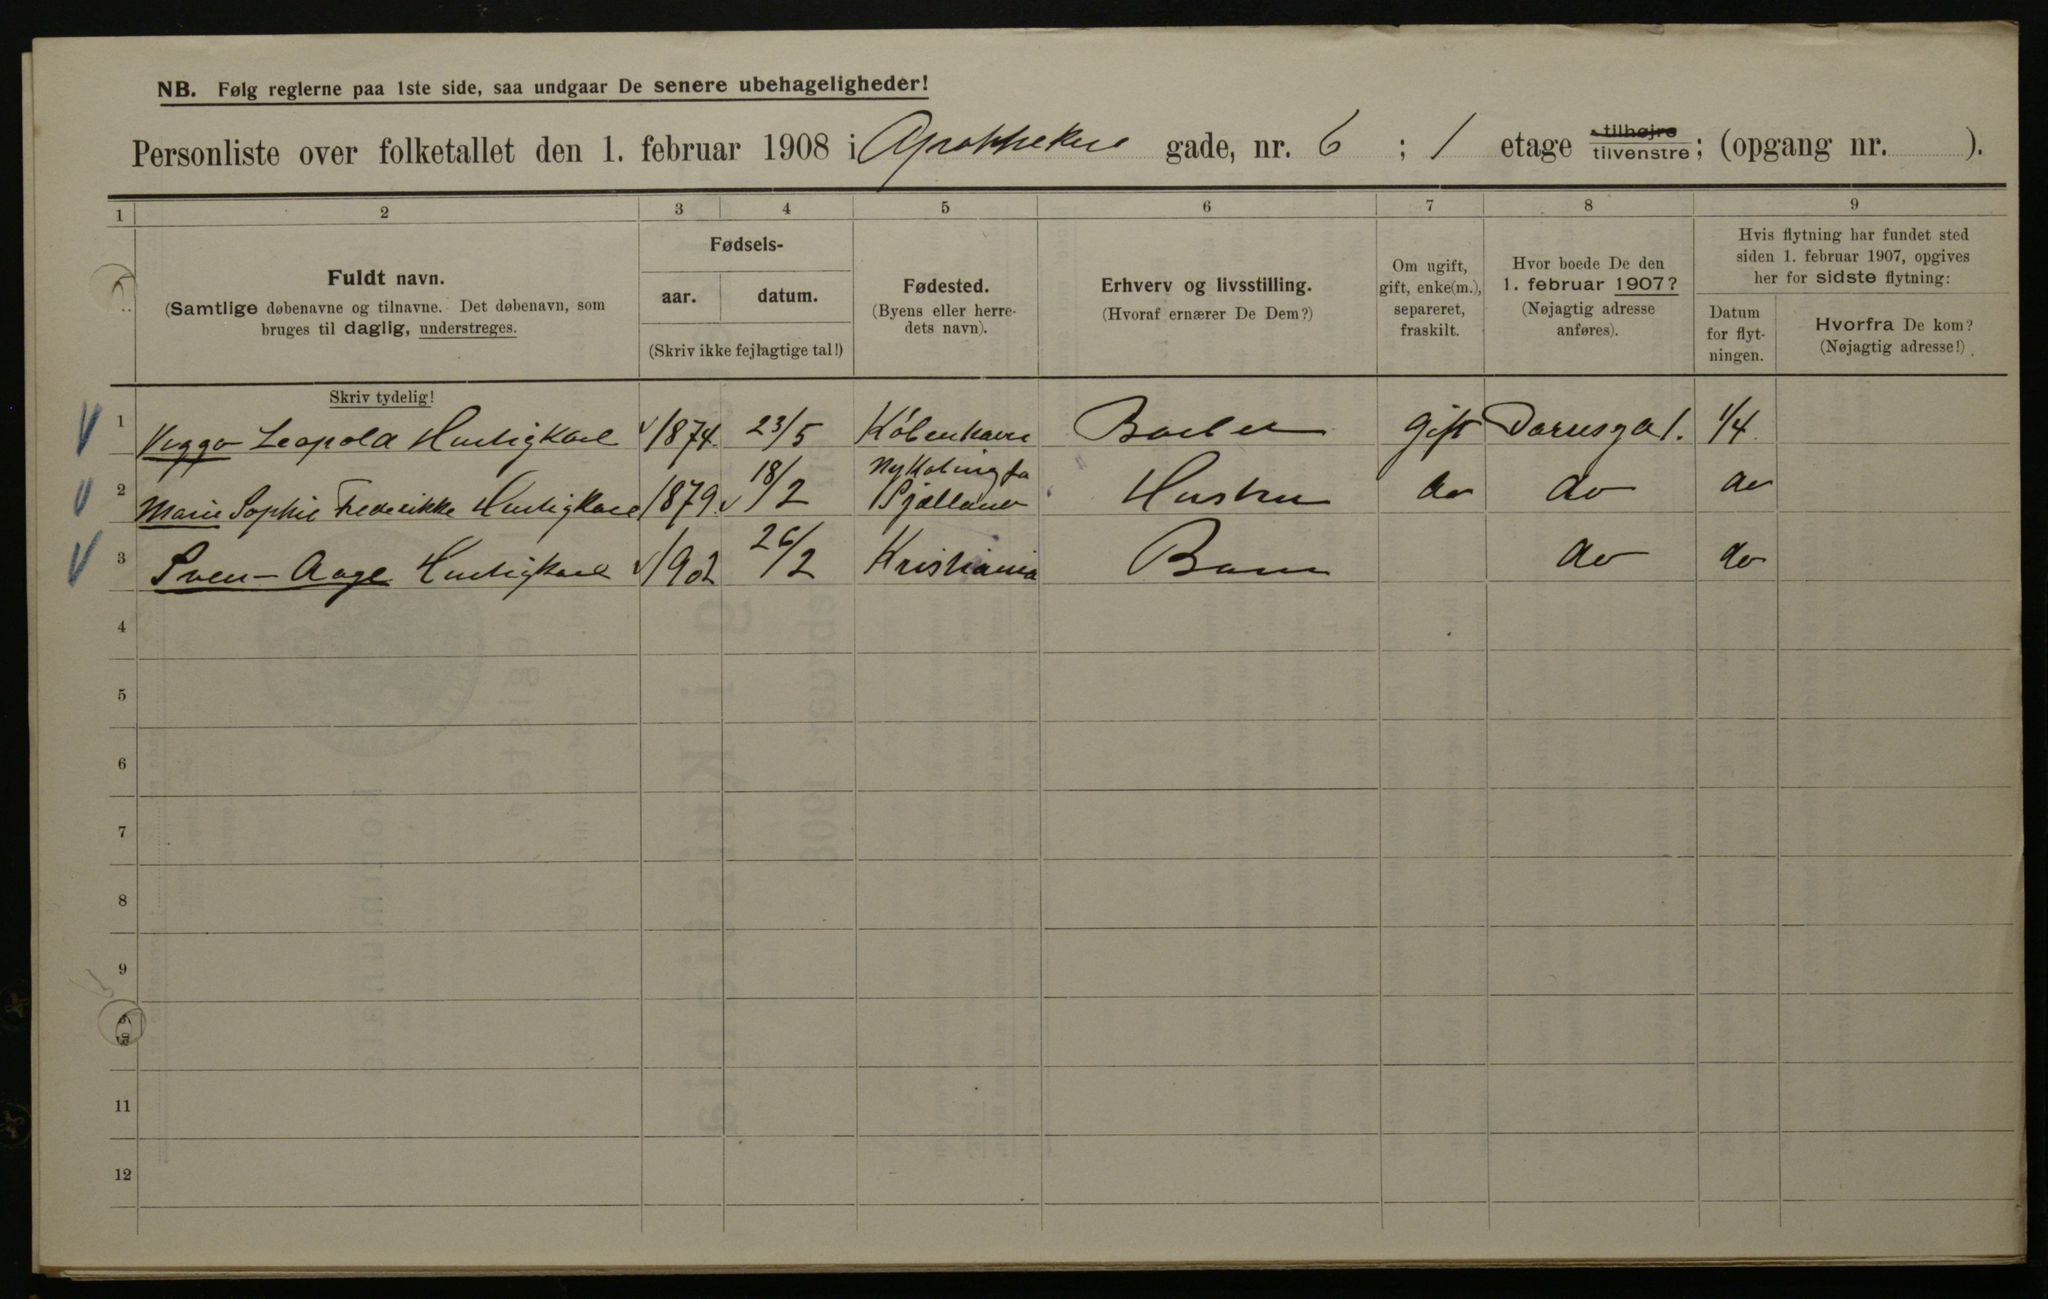 NB. Følg reglerne paa 1ste side, saa undgaar De senere ubehageligheder!
Personliste over folketallet den 1. februar 1908 i Apothekere gade, nr. 6 ; 1 etage tilhøjre tilvenstre; (opgang nr. ).
1 2 3 4 5 6 7 8 9
Fuldt navn.
(Samtlige døbenavne og tilnavne. Det døbenavn, som
bruges til daglig, understreges.
Fødsels-
aar. datum.
(Skriv ikke fejlagtige tal!)
Fødested.
(Byens eller herre-
dets navn).
Erhverv og livsstilling.
(Hvoraf ernærer De Dem?)
Om ugift,
gift, enke(m.),
separeret,
fraskilt.
Hvor boede De den
1. februar 1907?
(Nøjagtig adresse
anføres).
Hvis flytning har fundet sted
siden 1. februar 1907, opgives
her for sidste flytning:
Datum
for flyt-
ningen.
Hvorfra De kom?
(Nøjagtig adresse!)
Skriv tydelig!
1 Viggo Leopold Hurtigkarl 1874. 23/5 København Barber gift 1. 1/4.
2 Marie Sophie Frederikke Hurtigkarl 1879. 18/2 Nykøbing Sjælland Hustru do do do
3 Sven-Aage Hurtigkarl 1902 26/2 Kristiania Barn do do
4
5
6
7
8
9
11
12